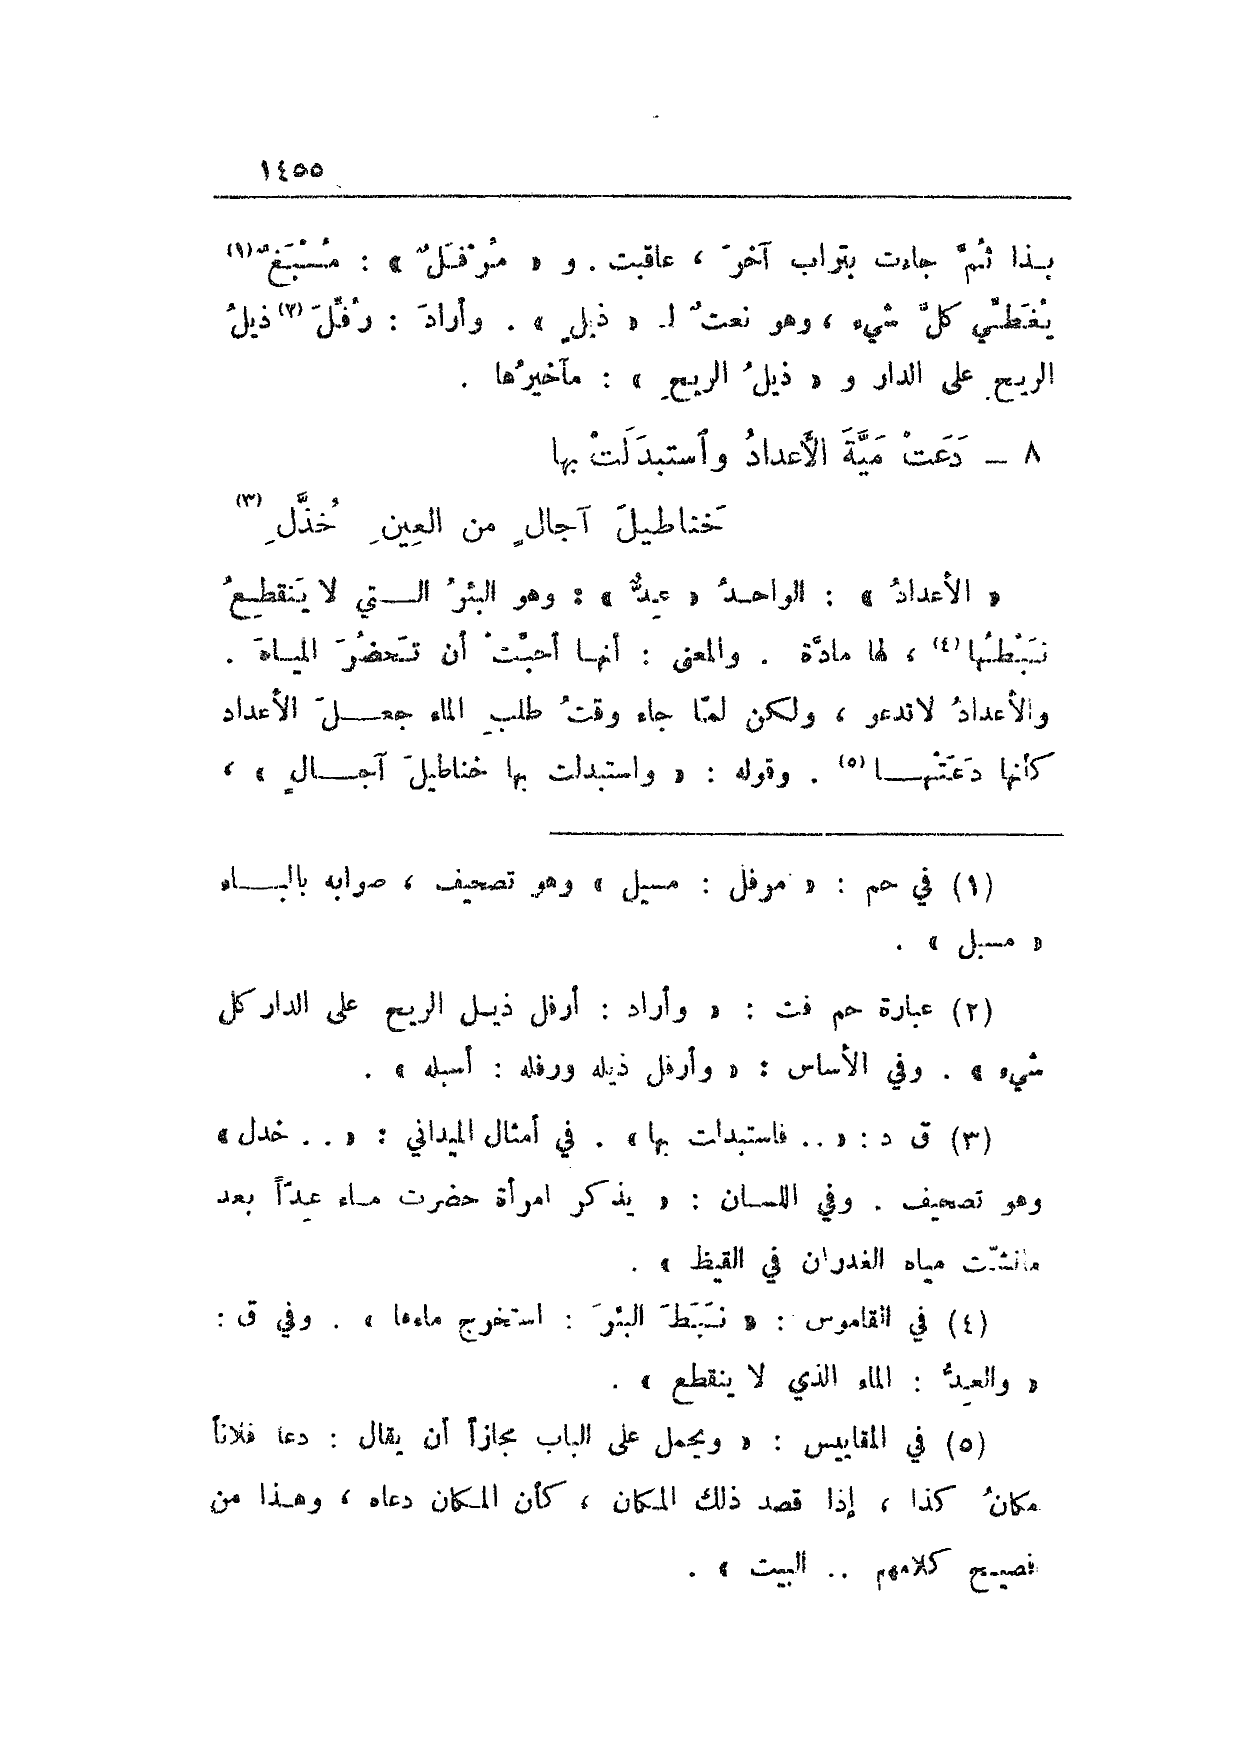 ١٤٥٥
بـذا ثُمَّ جاءت بتراب آخرَ ، عاقبت . و « مُرْفَلٌ » : مُسْبَغٌ(١)
يُغَطّي كلَّ شيء ، وهو نعتٌ لـ « ذيلٍ » . وأرادَ : رُفِّلَ(٢) ذيلُ
الريحِ على الدار و « ذيلُ الريحِ » : مآخيرُها .
٨ – دَعَتْ مَيَّةَ الأَعدادُ وٱستبدَلَتْ بها
خَناطيلَ آجالٍ من العِينِ خُذَّلِ(٣)
« الأعدادُ » : الواحـدُ « عِدٌّ » : وهو البئرُ الـتي لا يَنقطـعُ
نَبْطُها(٤) ، لها مادّة . والمعنى : أنهـا أحبّتْ أن تَحضُرَ الميـاهَ .
والأعدادُ لاتدعو ، ولكن لمّا جاء وقتُ طلبِ الماء جعـلَ الأعداد
كأنها دَعَتْهـا(٥) . وقوله : « واستبدلت بها خناطيلَ آجـالٍ » ،
(١) في حم : « مرفل : مسيل » وهو تصحيف ، صوابه بالبـاء
« مسبل » .
(٢) عبارة حم فت : « وأراد : أرفل ذيـل الريح على الدار كل
شيء » . وفي الأساس : « وأرفل ذيله ورفله : أسبله » .
(٣) ق د : « .. فاستبدلت بها» . في أمثال الميداني : « .. خدل »
وهو تصحيف . وفي اللسـان : « يذكر امرأة حضرت مـاء عِدّاً بعد
مانشّت مياه الغدران في القيظ » .
(٤) في القاموس : « نَبَطَ البئرَ : استخرج ماءها » . وفي ق :
« والعِدُّ : الماء الذي لا ينقطع » .
(٥) في المقاييس : « ويحمل على الباب مجازاً أن يقال : دعا فلاناً
مكانُ كذا ، إذا قصد ذلك المكان ، كأن المكان دعاه ، وهـذا من
فصيـح كلامهم .. البيت » .